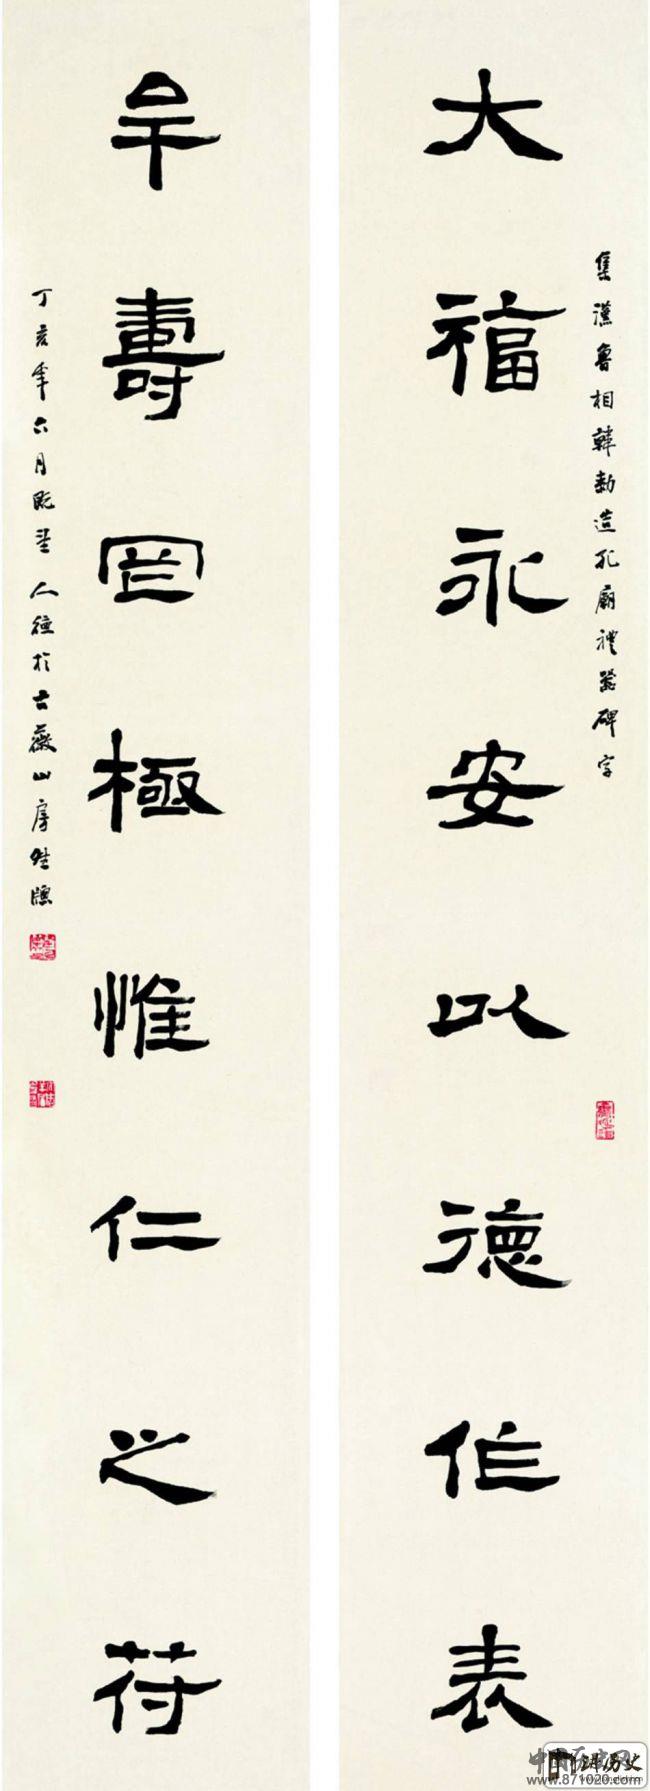 大福永安以德作表
集漢魯相韓勑造孔廟禮器碑字
牟壽罔極惟仁之符
丁亥年六月既望 於古薇山房
www.871020.com